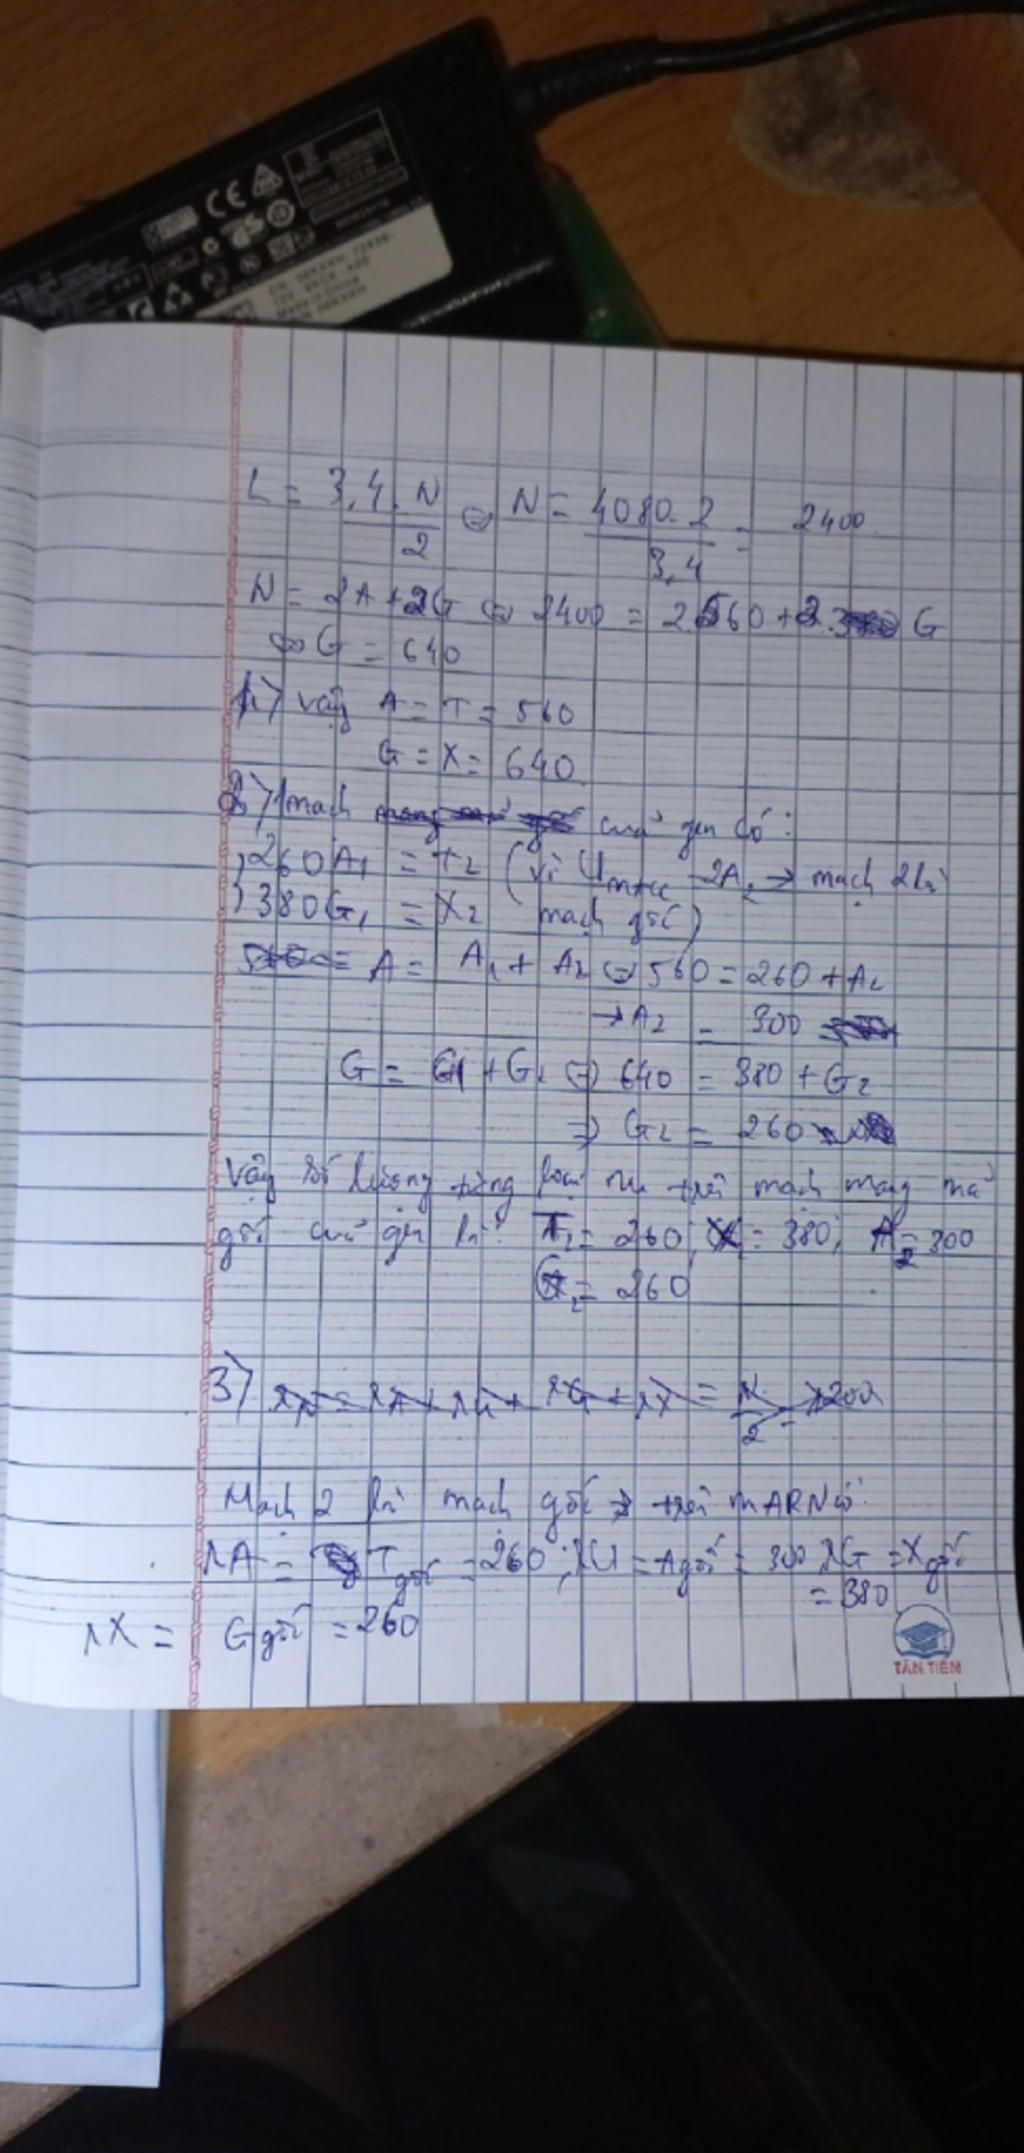 CE
L = 3,4. N / 2 ⇔ N = 4080.2 / 3,4 = 2400
N = 2A + 2G ⇔ 2400 = 2.560 + 2. G
⇔ G = 640
1) Vậy A = T = 560
G = X = 640
2) 1 mạch của gen có:
260A₁ = T₂ (vì U = A₂ → mạch 2 là
380G₁ = X₂ mạch gốc)
A = A₁ + A₂ ⇔ 560 = 260 + A₂
→ A₂ = 300
G = G1 + G₂ ⇔ 640 = 380 + G₂
⇒ G₂ = 260
Vậy số lượng từng loại nu trên mạch mang mã
gốc của gen là: T₂ = 260; X₂ = 380; A₂ = 300
G₂ = 260
3) rN = rA + rU + rG + rX = N / 2 = 1200
Mạch 2 là mạch gốc → trên mARN có:
rA = T gốc = 260; rU = A gốc = 300 rG = X gốc
= 380
rX = G gốc = 260
TÂN TIẾN